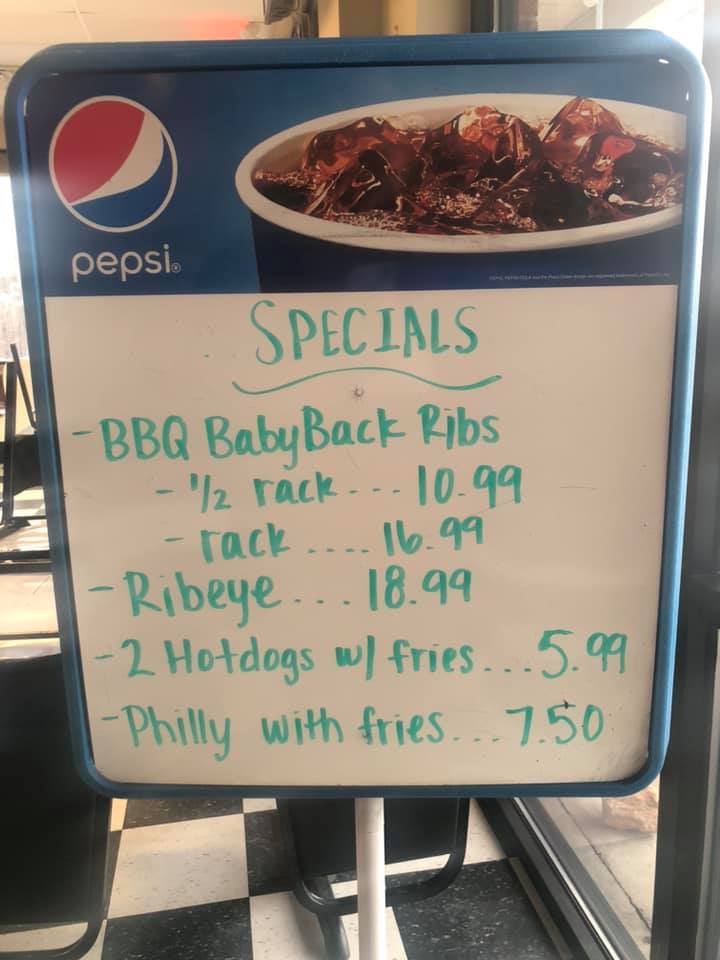 pepsi®
SPECIALS
- BBQ BabyBack Ribs
- 1/2 rack --- 10.99
- rack .... 16.99
- Ribeye ... 18.99
- 2 Hotdogs w/ fries ... 5.99
- Philly with fries ... 7.50